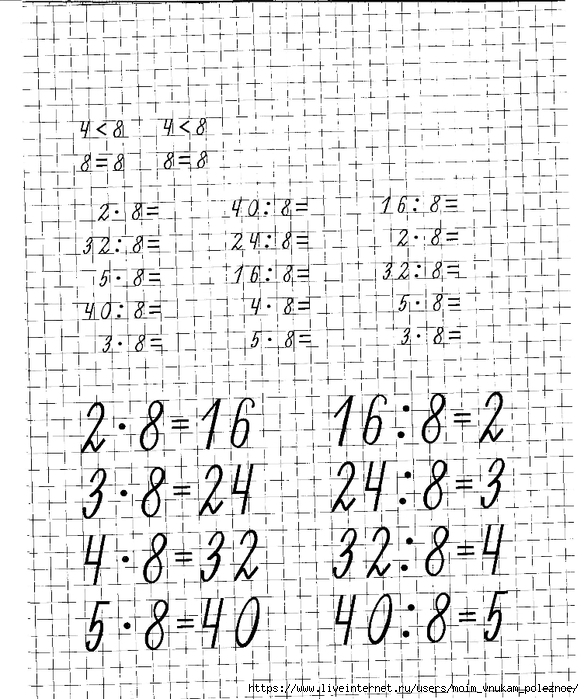 4<8 4<8
8=8 8=8
2· 8= 40: 8= 16: 8=
32: 8= 24: 8= 2· 8=
5· 8= 16: 8= 32: 8=
40: 8= 4· 8= 5· 8=
3· 8= 5· 8= 3· 8=
2·8=16 16:8=2
3·8=24 24:8=3
4·8=32 32:8=4
5·8=40 40:8=5
https://www.liveinternet.ru/users/moim_vnukam_poleznoe/